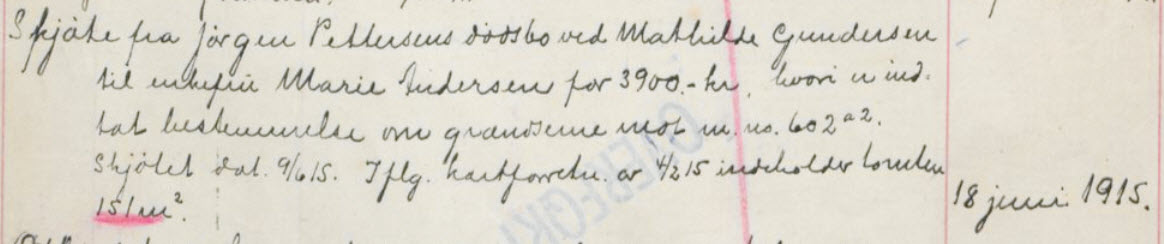 Skjöte fra Jörgen Pettersens dödsbo ved Mathilde Gundersen
til enkefru Marie Andersen for 3900.- kr, hvori er ind-
tat bestemmelse om grændserne mot m. no. 602 a2.
Skjötet dat. 9/6 15. Iflg. kartforretn. av 4/2 15 indeholder tomten
151 m².
18 juni 1915.